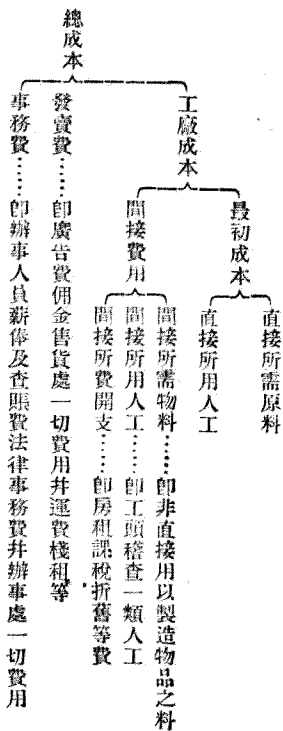 總成本
工廠成本
最初成本
直接所需原料
直接所用人工
間接費用
間接所需物料……卽非直接用以製造物品之料
間接所用人工……卽工頭稽查一類人工
間接所費開支……卽房租課稅折舊等費
發賣費……卽廣告費佣金售貨處一切費用幷運費棧租等
事務費……卽辦事人員薪俸及查賬費法律事務費幷辦事處一切費用